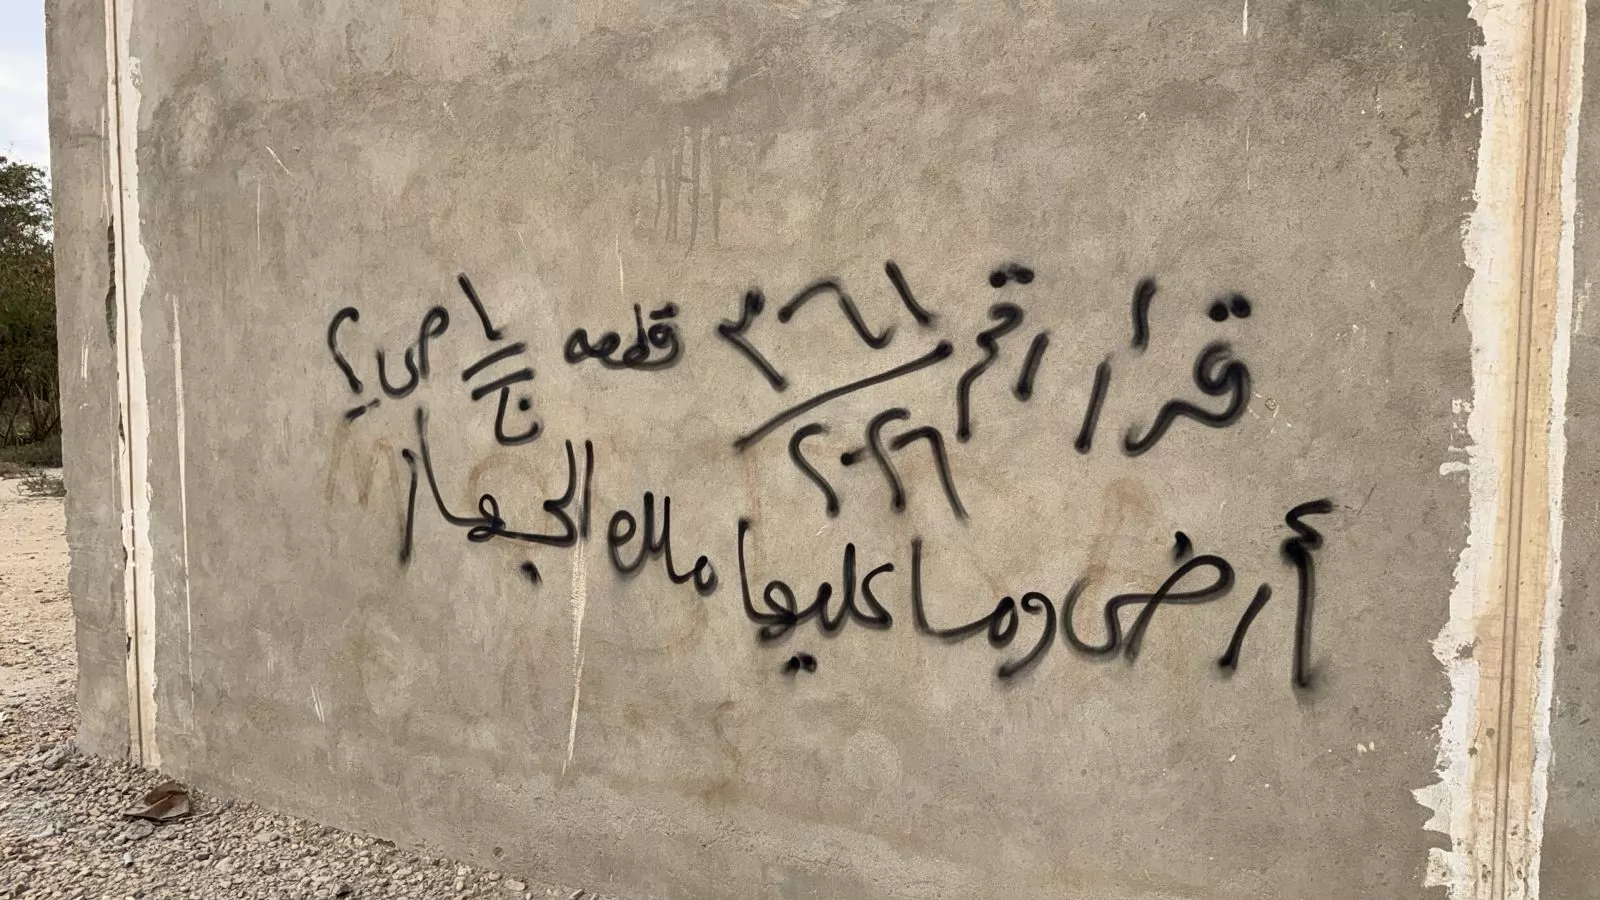 قرار رقم ٣٦١/٢٠٢٦ قطعه ١/نا ص ؟
أرض وما عليها ملك الجهاز